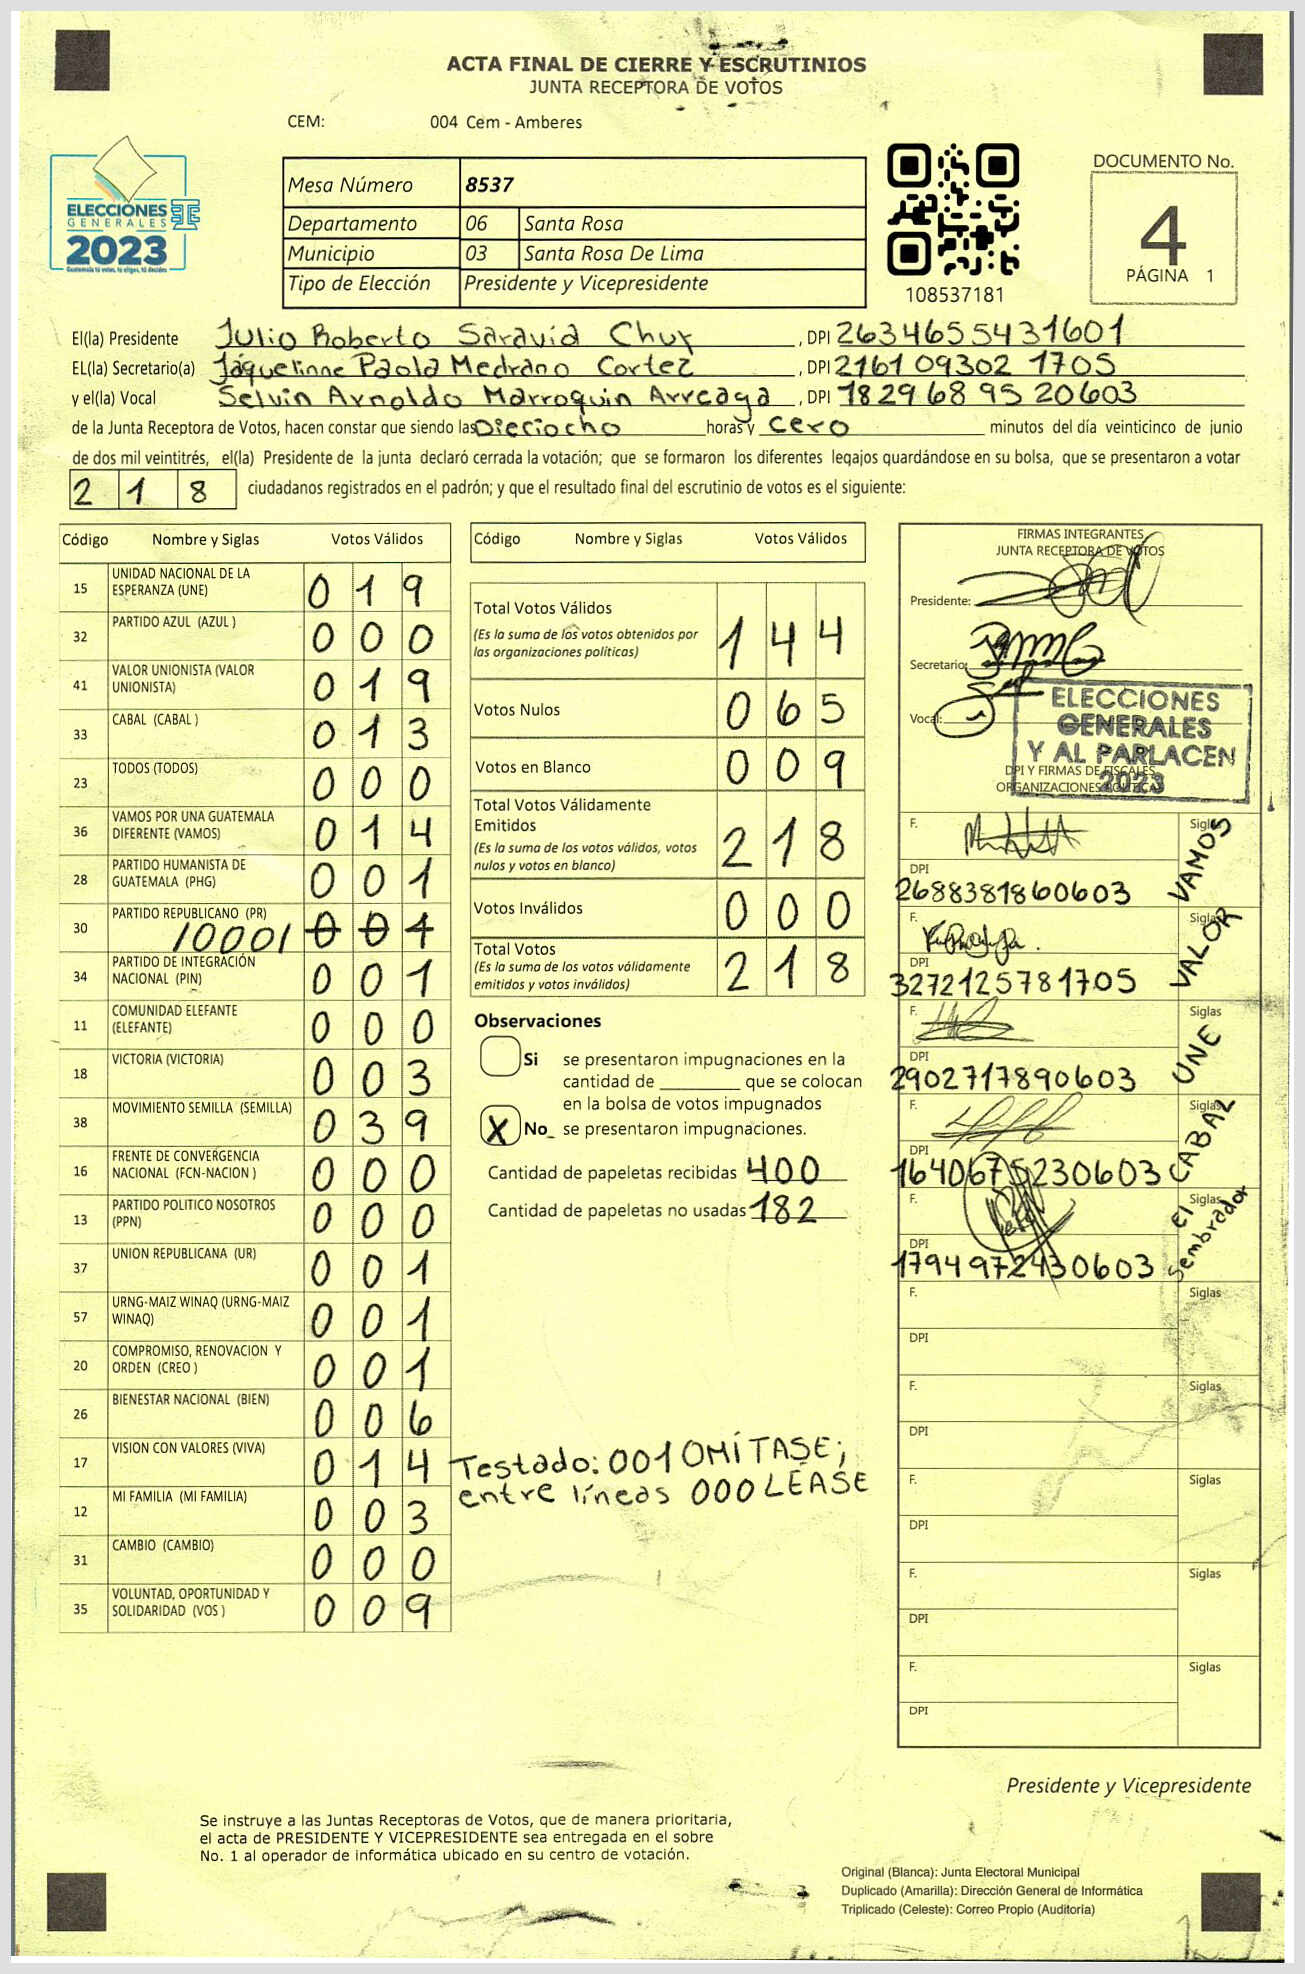 ACTA FINAL DE CIERRE Y ESCRUTINIOS
JUNTA RECEPTORA DE VOTOS
CEM: 004 Cem - Amberes
ELECCIONES
GENERALES
2023
Guatemala tú votas, tú eliges, tú decides
Mesa Número 8537
Departamento 06 Santa Rosa
Municipio 03 Santa Rosa De Lima
Tipo de Elección Presidente y Vicepresidente
108537181
DOCUMENTO No.
4
PÁGINA 1
El(la) Presidente Julio Roberto Saravia Chuy, DPI 2634655431601
EL(la) Secretario(a) Jáquelinne Paola Medrano Cortez, DPI 2161 09302 1705
y el(la) Vocal Selvin Arnoldo Marroquin Arreaga, DPI 1829 68 95 20603
de la Junta Receptora de Votos, hacen constar que siendo las Dieciocho horas y cero minutos del día veinticinco de junio
de dos mil veintitrés, el(la) Presidente de la junta declaró cerrada la votación; que se formaron los diferentes legajos guardándose en su bolsa, que se presentaron a votar
2 1 8 ciudadanos registrados en el padrón; y que el resultado final del escrutinio de votos es el siguiente:
Código Nombre y Siglas Votos Válidos
15 UNIDAD NACIONAL DE LA
ESPERANZA (UNE) 0 1 9
32 PARTIDO AZUL (AZUL ) 0 0 0
41 VALOR UNIONISTA (VALOR
UNIONISTA) 0 1 9
33 CABAL (CABAL ) 0 1 3
23 TODOS (TODOS) 0 0 0
36 VAMOS POR UNA GUATEMALA
DIFERENTE (VAMOS) 0 1 4
28 PARTIDO HUMANISTA DE
GUATEMALA (PHG) 0 0 1
30 PARTIDO REPUBLICANO (PR)
/000/ 0 0 1
34 PARTIDO DE INTEGRACIÓN
NACIONAL (PIN) 0 0 1
11 COMUNIDAD ELEFANTE
(ELEFANTE) 0 0 0
18 VICTORIA (VICTORIA) 0 0 3
38 MOVIMIENTO SEMILLA (SEMILLA) 0 3 9
16 FRENTE DE CONVERGENCIA
NACIONAL (FCN-NACION ) 0 0 0
13 PARTIDO POLITICO NOSOTROS
(PPN) 0 0 0
37 UNION REPUBLICANA (UR) 0 0 1
57 URNG-MAIZ WINAQ (URNG-MAIZ
WINAQ) 0 0 1
20 COMPROMISO, RENOVACION Y
ORDEN (CREO ) 0 0 1
26 BIENESTAR NACIONAL (BIEN) 0 0 6
17 VISION CON VALORES (VIVA) 0 1 4
12 MI FAMILIA (MI FAMILIA) 0 0 3
31 CAMBIO (CAMBIO) 0 0 0
35 VOLUNTAD, OPORTUNIDAD Y
SOLIDARIDAD (VOS ) 0 0 9
Código Nombre y Siglas Votos Válidos
Total Votos Válidos
(Es la suma de los votos obtenidos por
las organizaciones políticas) 1 4 4
Votos Nulos 0 6 5
Votos en Blanco 0 0 9
Total Votos Válidamente
Emitidos
(Es la suma de los votos válidos, votos
nulos y votos en blanco) 2 1 8
Votos Inválidos 0 0 0
Total Votos
(Es la suma de los votos válidamente
emitidos y votos inválidos) 2 1 8
Observaciones
Si se presentaron impugnaciones en la
cantidad de ________ que se colocan
en la bolsa de votos impugnados
X No_ se presentaron impugnaciones.
Cantidad de papeletas recibidas 400
Cantidad de papeletas no usadas 182
Testado: 001 OMÍTASE;
entre líneas 000 LÉASE
FIRMAS INTEGRANTES
JUNTA RECEPTORA DE VOTOS
Presidente:
Secretario:
Vocal:
ELECCIONES
GENERALES
Y AL PARLACEN
2023
DPI Y FIRMAS DE FISCALES
ORGANIZACIONES POLÍTICAS
F. Siglas VAMOS
DPI
2688381860603
F. Siglas VALOR
DPI
3272125781705
F. Siglas UNE
DPI
2902717890603
F. Siglas CABAL
DPI
1640675230603
F. Siglas El Sembrador
DPI
1794972430603
F. Siglas
DPI
F. Siglas
DPI
F. Siglas
DPI
F. Siglas
DPI
F. Siglas
DPI
Presidente y Vicepresidente
Se instruye a las Juntas Receptoras de Votos, que de manera prioritaria,
el acta de PRESIDENTE Y VICEPRESIDENTE sea entregada en el sobre
No. 1 al operador de informática ubicado en su centro de votación.
Original (Blanca): Junta Electoral Municipal
Duplicado (Amarilla): Dirección General de Informática
Triplicado (Celeste): Correo Propio (Auditoría)